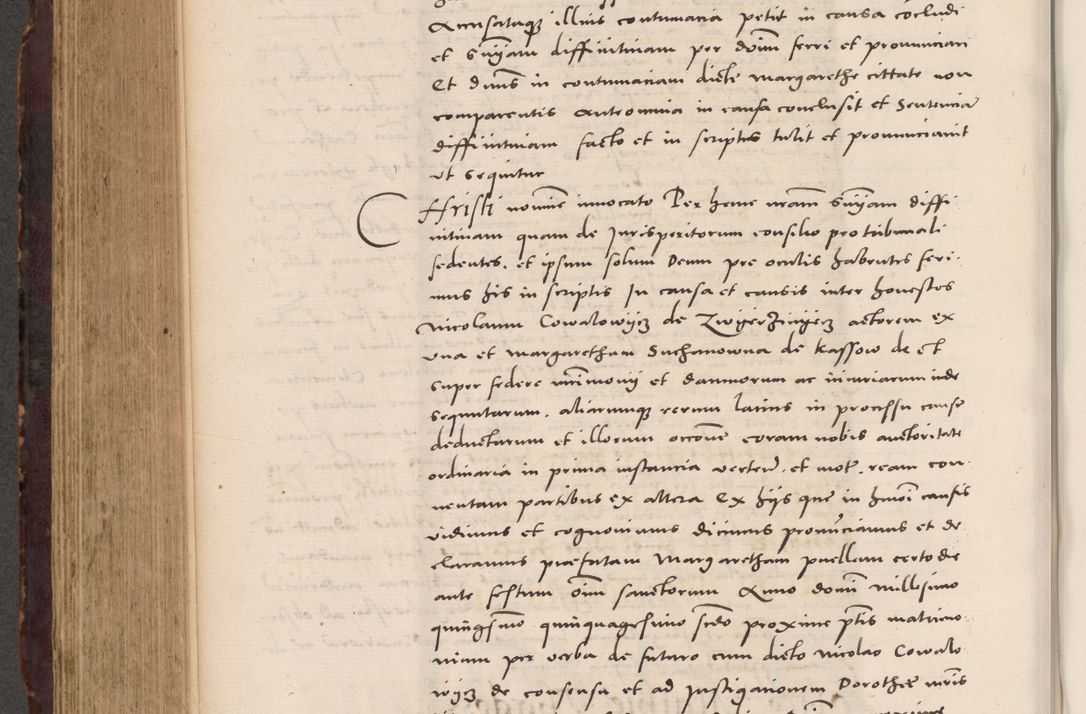 Accusataqꝫ illius contumacia petit in causa cōcludi
et sn̄iam diffinitiuam per dom̄ ferri et pronunciari
Et dn̄us in contumaciam dicte Margarethe cittate non
comparentis anteomnia in causa conclusit et Sentencia
diffinitiuam facto et in scriptis tulit et pronunciauit
ut sequitur
CHristi nomine inuocato Per hanc nr̄am sn̄iam diffi
nitiuam quam de Jurisperitorum consilio pro tribunali
sedentes, et ipsum solum Deum pre oculis habentes feri
mus his in scriptis In causa et causis inter honestos
Nicolaum Cowalowijcz de Zwijerzinijecz actorem ex
vna et Margaretham Suchanowna de Kassow de et
super federe mr̄imonij et damnorum ac iniuriarum inde
sequutarum, aliarumqꝫ rerum latius in processu cause
deductarum et illorum occōne coram nobis auctoritate
ordinaria in prima instancia verten̄. et mot. ream con
uentam partibus ex altera Ex hijs que in hm̄oi causis
vidimus et cognouimus dicimus pronūciamus et de
claramus praefatam Margaretham puellam certo die
ante festum oīm sanctorum Anno domi Millesimo
quingsmo quinquagesimo scdo proxime ptis matrimo
nium per verba de futuro cum dicto Nicolao Cowalo
wijcz de consensu et ad Justigationem Dorothee mr̄is